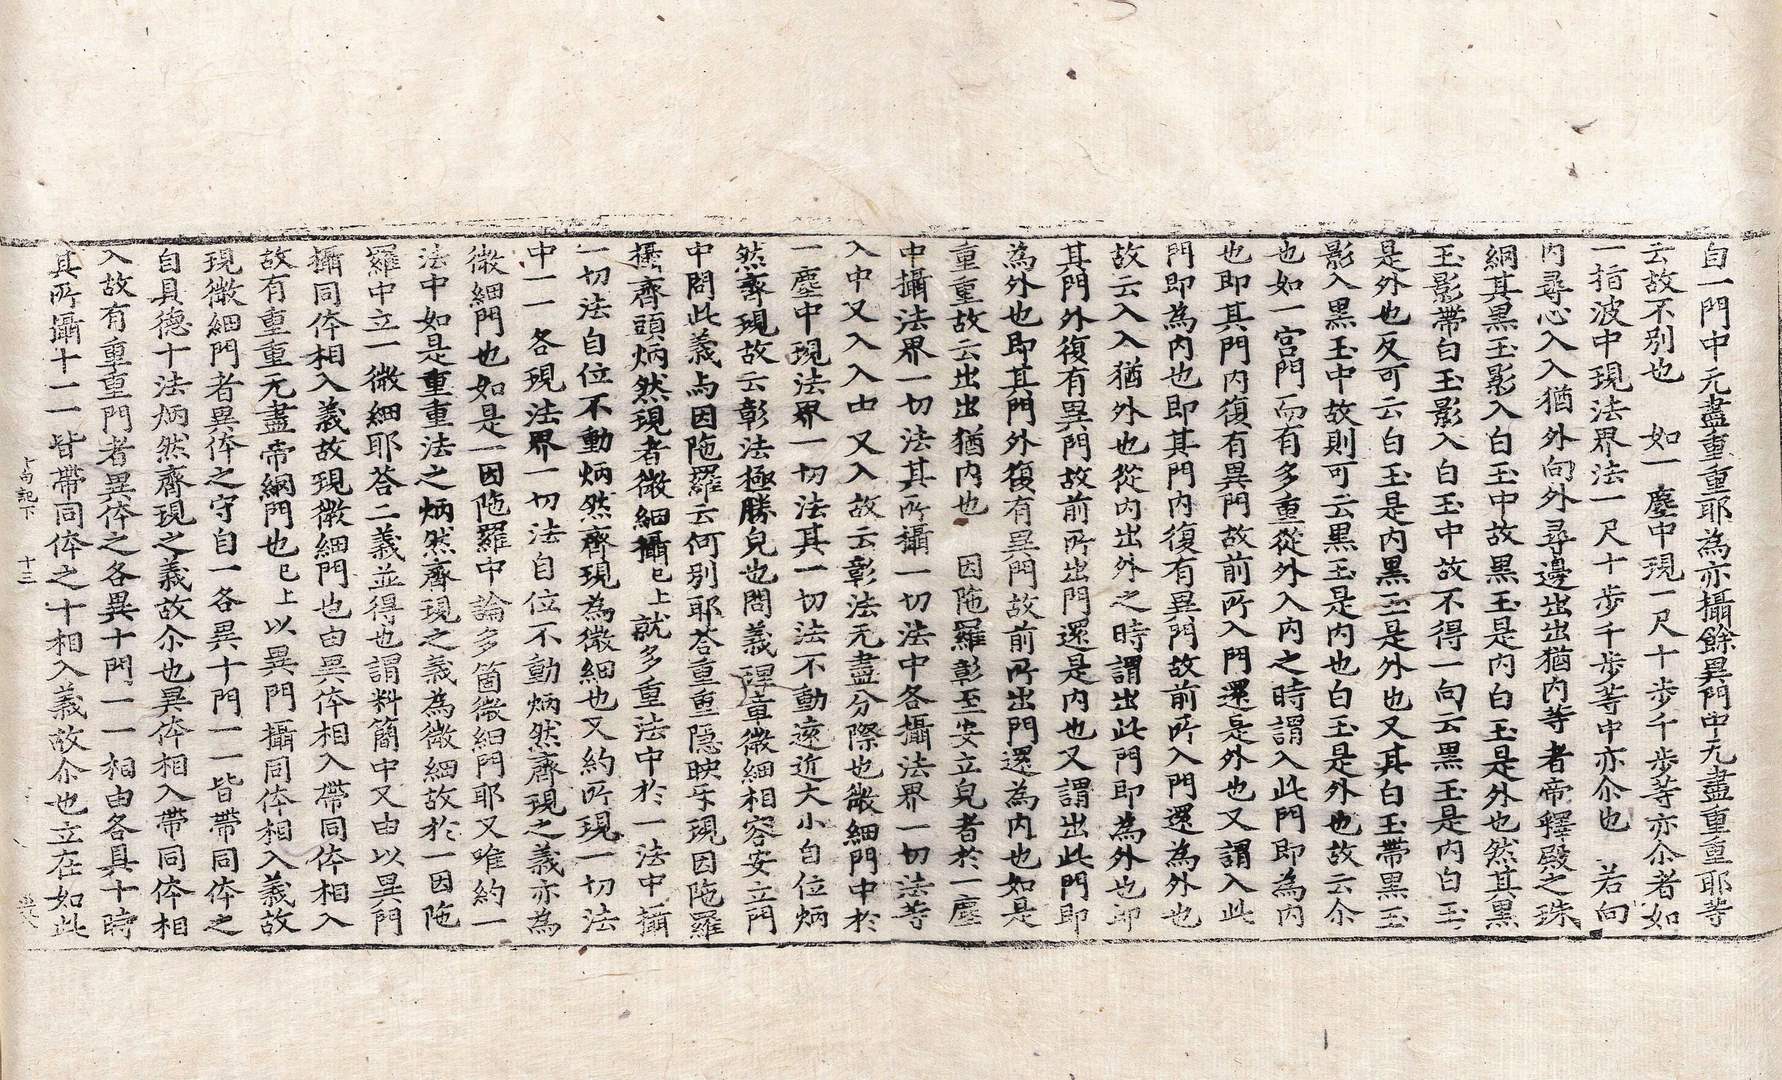 自一門中无盡重重耶為亦攝餘異門中无盡重重耶等
云故不別也　如一塵中現一尺十步千步等亦尒者如
一指波中現法界法一尺十步千步等中亦尒也　若向
內尋心入入猶外向外尋邊出出猶內等者帝釋殿之珠
網其黒玉影入白玉中故黒玉是內白玉是外也然其黒
玉影帶白玉影入白玉中故不得一向云黒玉是內白玉
是外也反可云白玉是內黒玉是外也又其白玉帶黒玉
影入黒玉中故則可云黒玉是內也白玉是外也故云尒
也如一宮門而有多重從外入內之時謂入此門即為內
也即其門內復有異門故前所入門還是外也又謂入此
門即為內也即其門內復有異門故前所入門還為外也
故云入入猶外也從內出外之時謂出此門即為外也即
其門外復有異門故前所出門還是內也又謂出此門即
為外也即其門外復有異門故前所出門還為內也如是
重重故云出出猶內也　因陁羅彰至安立皃者於一塵
中攝法界一切法其所攝一切法中各攝法界一切法等
入中又入入中又入故云彰法无盡分際也微細門中於
一塵中現法界一切法其一切法不動遠近大小自位炳
然齊現故云彰法極勝皃也問義理章微細相容安立門
中問此義与因陁羅云何別耶荅重重隠映互現因陁羅
攝齊頭炳然現者微細攝已上就多重法中於一法中攝
一切法自位不動炳然齊現為微細也又約所現一切法
中一一各現法界一切法自位不動炳然齊現之義亦為
微細門也如是一因陁羅中論多箇微細門耶又唯約一
法中如是重重法之炳然齊現之義為微細故於一因陁
羅中立一微細耶荅二義並得也謂料簡中又由以異門
攝同体相入義故現微細門也由異体相入帶同体相入
故有重重无盡帝網門也已上以異門攝同体相入義故
現微細門者異体之守自一各異十門一一皆帶同体之
自具德十法炳然齊現之義故尒也異体相入帶同体相
入故有重重門者異体之各異十門一一相由各具十時
其所攝十一一皆帶同体之十相入義故尒也立在如此
十句記下　十三